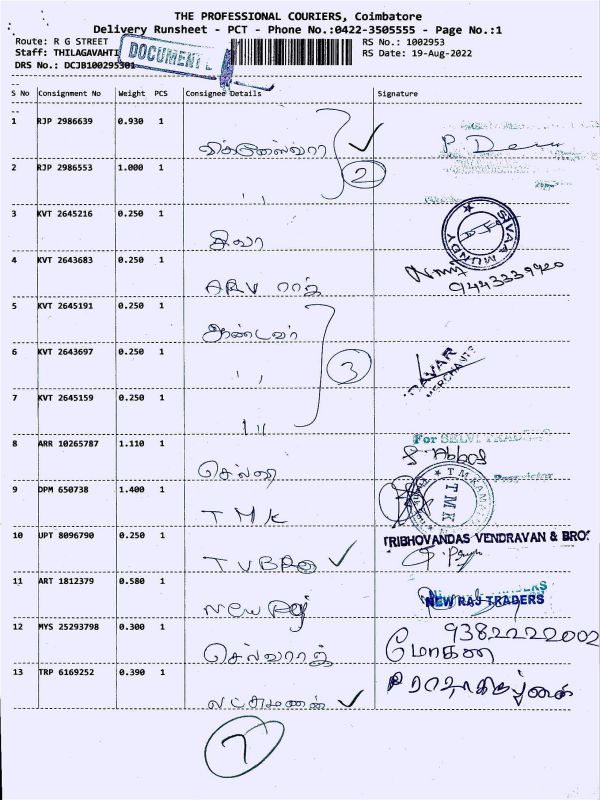 THE PROFESSIONAL COURIERS, Coimbatore
Delivery Runsheet - PCT - Phone No.:0422-3505555 - Page No.:1
Route: R G STREET RS No.: 1002953
Staff: THILAGAVAHTI RS Date: 19-Aug-2022
DRS No.: DCJB100295301
DOCUMENT
S No Consignment No Weight PCS Consignee Details Signature
1 RJP 2986639 0.930 1
2 RJP 2986553 1.000 1 2
3 KVT 2645216 0.250 1 சிவா SIVAA MUNDY
4 KVT 2643683 0.250 1 ARV ராஜ் 9443339920
5 KVT 2645191 0.250 1 ஆண்டவர்
6 KVT 2643697 0.250 1 3 MERCHANTS
7 KVT 2645159 0.250 1
8 ARR 10265787 1.110 1 செல்வி For SELVI TRADERS
9 DPM 650738 1.400 1 TMK TMK
10 UPT 8096790 0.250 1 TVBRO TRIBHOVANDAS VENDRAVAN & BROS
11 ART 1812379 0.580 1 New Raj NEW RAJ TRADERS
12 MYS 25293798 0.300 1 செல்வராஜ் 9382222002
மோகன்
13 TRP 6169252 0.390 1 லட்சுமணன்
7